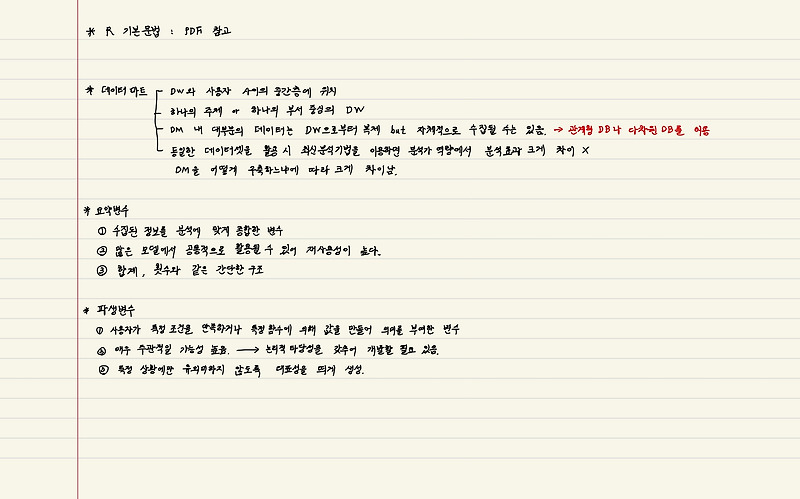 * R 기본문법 : PDF 참고
* 데이터 마트 DW와 사용자 사이의 중간층에 위치
하나의 주제 or 하나의 부서 중심의 DW
DM 내 대부분의 데이터는 DW으로부터 복제 but 자체적으로 수집될 수는 있음. → 관계형 DB나 다차원 DB를 이용
동일한 데이터셋을 활용 시 최신분석기법을 이용하면 분석가 역량에서 분석효과 크게 차이 X
DM을 어떻게 구축하느냐에 따라 크게 차이남.
* 요약변수
① 수집된 정보를 분석에 맞게 종합한 변수
② 많은 모델에서 공통적으로 활용될 수 있어 재사용성이 높다.
③ 합계, 횟수와 같은 간단한 구조
* 파생변수
① 사용자가 특정 조건을 만족하거나 특정 함수에 의해 값을 만들어 의미를 부여한 변수
② 매우 주관적일 가능성 높음. → 논리적 타당성을 갖추어 개발할 필요 있음.
③ 특정 상황에만 유의미하지 않도록 대표성을 띄게 생성.